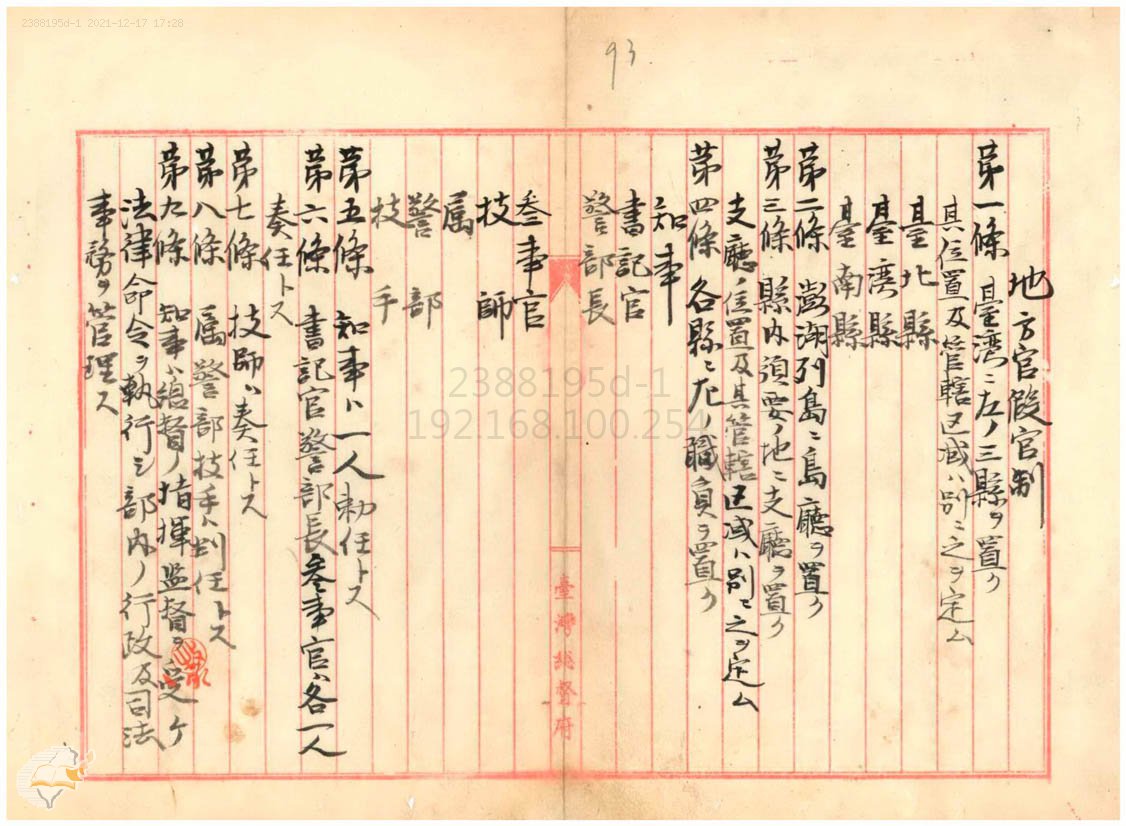 2388195d-1 2021-12-17 17:28
93
地方官假官制
第一條 臺湾ニ左ノ三縣ヲ置ク
其位置及管轄区域ハ別ニ之ヲ定ム
臺北縣
臺湾縣
臺南縣
第二條 澎湖列島ニ島廳ヲ置ク
第三條 縣内須要ノ地ニ支廳ヲ置ク
支廳ノ位置及其管轄区域ハ別ニ之ヲ定ム
第四條 各縣ニ左ノ職員ヲ置ク
知事
書記官
警部長
叅事官
技師
属
警部
技手
第五條 知事ハ一人勅任トス
第六條 書記官警部長叅事官ハ各一人
奏任トス
第七條 技師ハ奏任トス
第八條 属警部技手ハ判任トス
第九條 知事ハ總督ノ指揮監督ヲ受ケ
法律命令ヲ執行シ部内ノ行政及司法
事務ヲ管理ス
臺灣總督府
2388195d-1
192.168.100.254